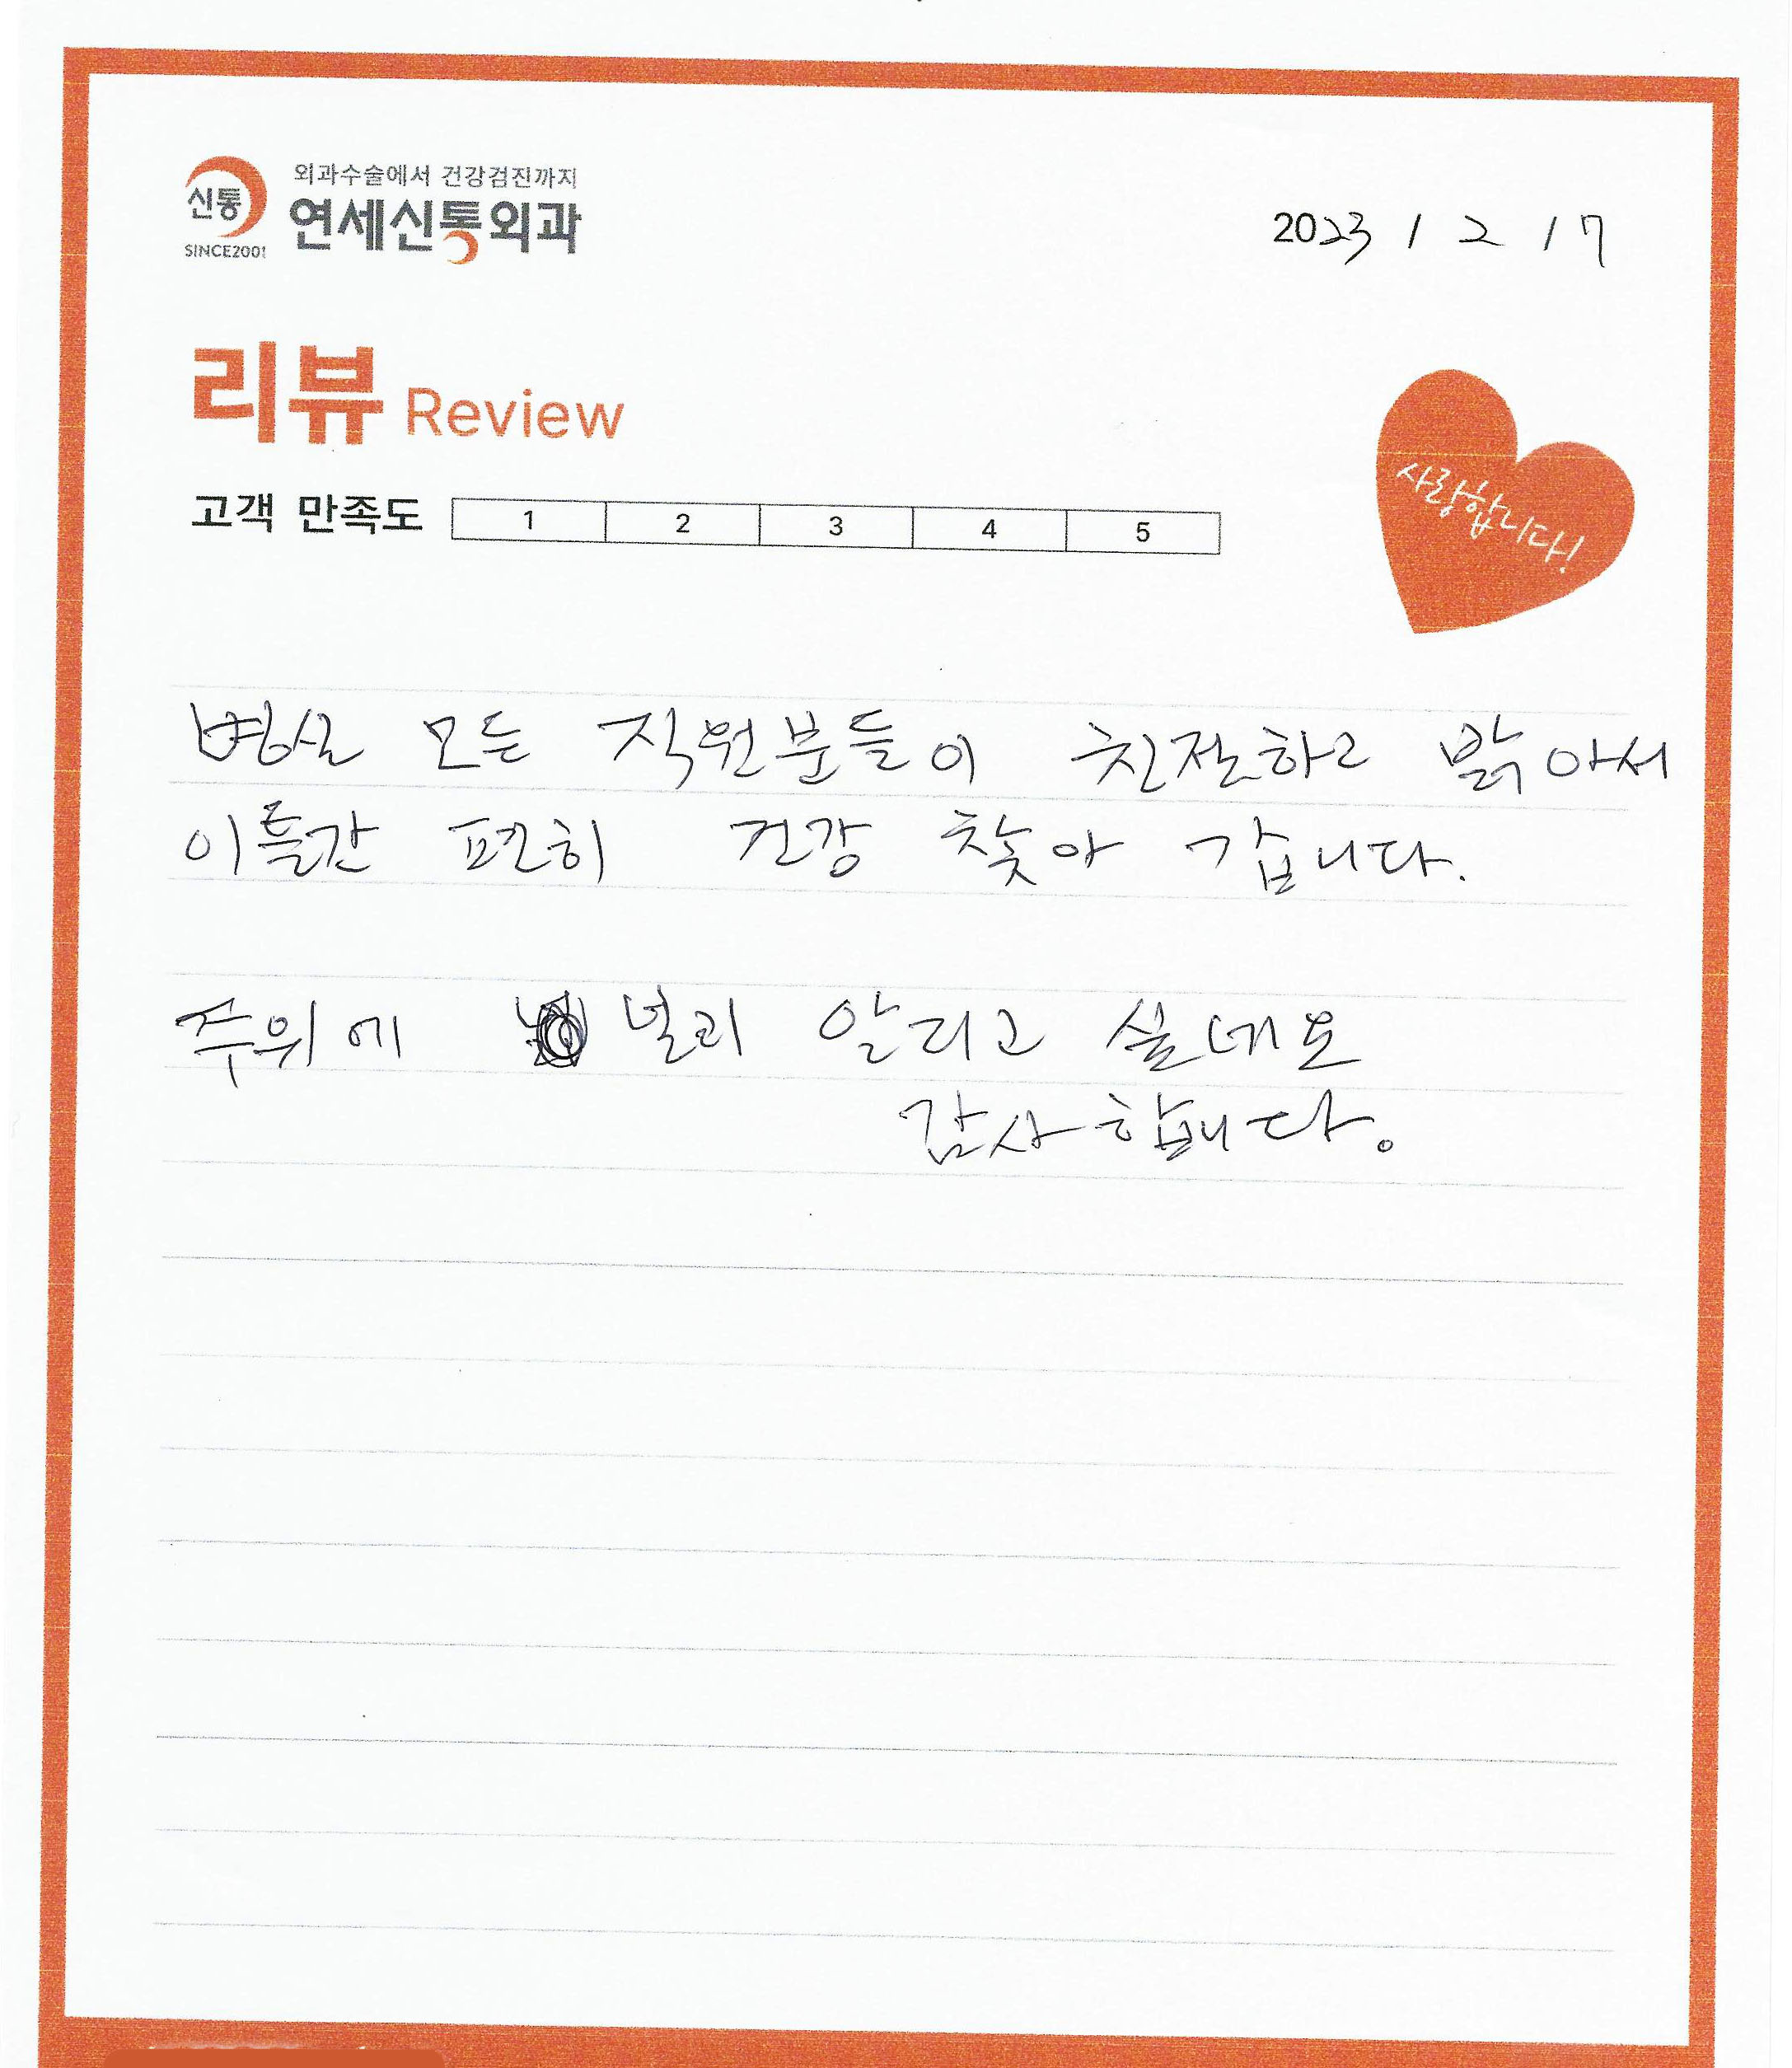 신통
SINCE2001
외과수술에서 건강검진까지
연세신통외과
2023 / 2 / 7
리뷰 Review
고객 만족도 1 2 3 4 5
사랑합니다!
병실 모든 직원분들이 친절하고 밝아서
이틀간 편히 건강 찾아 갑니다.
주위에 널리 알리고 싶네요
감사합니다.